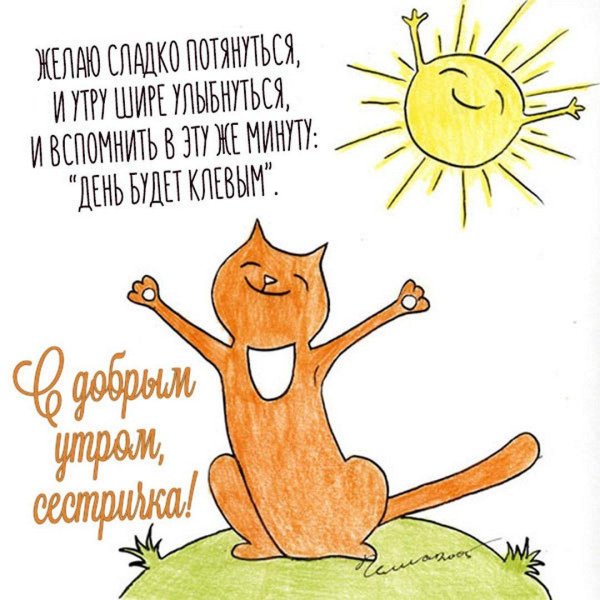 ЖЕЛАЮ СЛАДКО ПОТЯНУТЬСЯ,
И УТРУ ШИРЕ УЛЫБНУТЬСЯ,
И ВСПОМНИТЬ В ЭТУ ЖЕ МИНУТУ:
"ДЕНЬ БУДЕТ КЛЕВЫМ".
С добрым
утром,
сестричка!